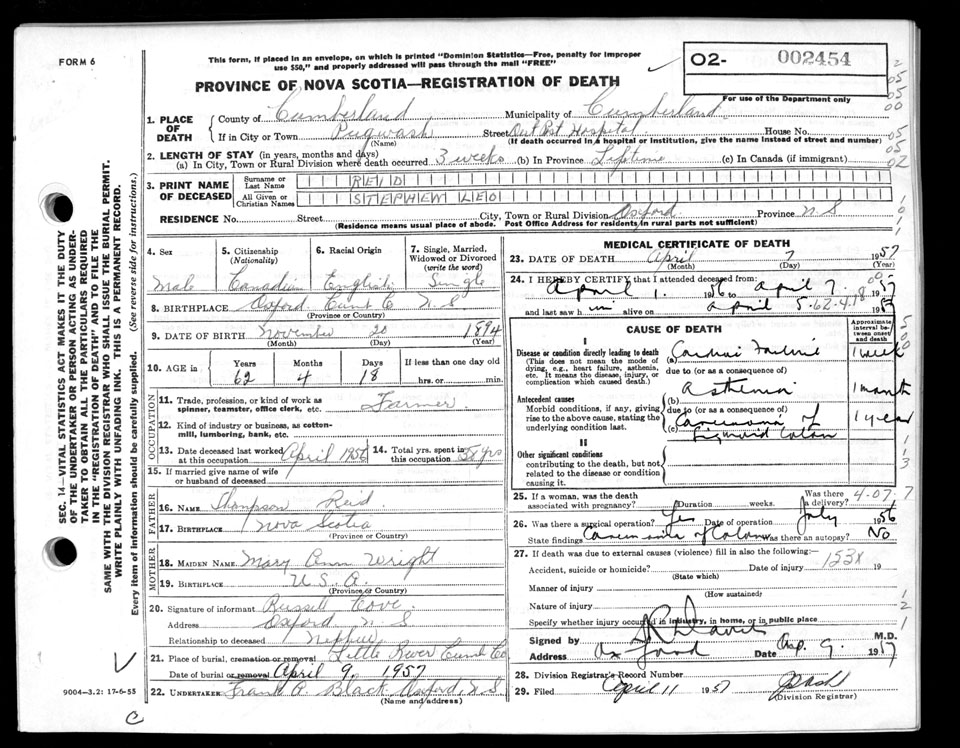 FORM 6
This form, if placed in an envelope, on which is printed "Dominion Statistics—Free, penalty for improper
use $50," and properly addressed will pass through the mail "FREE"
O2- 002454
PROVINCE OF NOVA SCOTIA—REGISTRATION OF DEATH
For use of the Department only
1. PLACE OF DEATH
County of Cumberland Municipality of Cumberland
If in City or Town Pugwash Street Out Post Hospital House No.
(Name) (If death occurred in a hospital or Institution, give the name instead of street and number)
2. LENGTH OF STAY (in years, months and days)
(a) In City, Town or Rural Division where death occurred 3 weeks (b) In Province Lifetime (c) In Canada (if immigrant)
3. PRINT NAME OF DECEASED
Surname or Last Name REID
All Given or Christian Names STEPHEW LEO
RESIDENCE No. Street City, Town or Rural Division Oxford Province N S
(Residence means usual place of abode. Post Office Address for residents in rural parts not sufficient)
4. Sex
Male
5. Citizenship (Nationality)
Canadian
6. Racial Origin
English
7. Single, Married, Widowed or Divorced (write the word)
Single
8. BIRTHPLACE Oxford Cumb C N S
(Province or Country)
9. DATE OF BIRTH November 20 1894
(Month) (Day) (Year)
10. AGE in
Years 62
Months 4
Days 18
If less than one day old
hrs. or min.
OCCUPATION
11. Trade, profession, or kind of work as
spinner, teamster, office clerk, etc. Farmer
12. Kind of industry or business, as cotton-
mill, lumbering, bank, etc.
13. Date deceased last worked
at this occupation April 1956
14. Total yrs. spent in
this occupation yrs
15. If married give name of wife
or husband of deceased
FATHER
16. Name Thompson Reid
17. Birthplace Nova Scotia
(Province or Country)
MOTHER
18. Maiden Name Mary Ann Wright
19. Birthplace U. S. A.
(Province or Country)
20. Signature of informant Russell Cove
Address Oxford N. S
Relationship to deceased Nephew
21. Place of burial, cremation or removal Little River Cumb Co
Date of burial or removal April 9, 1957
22. Undertaker Frank A. Black Oxford, N S
(Name and address)
MEDICAL CERTIFICATE OF DEATH
23. DATE OF DEATH April 7 1957
(Month) (Day) (Year)
24. I HEREBY CERTIFY that I attended deceased from:
April 1. 1956 to April 7. 1957
and last saw h im alive on April 5 62.4.18 1957
CAUSE OF DEATH
Approximate interval between onset and death
I
Disease or condition directly leading to death
(This does not mean the mode of
dying, e.g., heart failure, asthenia,
etc. It means the disease, injury, or
complication which caused death.
(a) Cardiac Failure 1 week
due to (or as a consequence of)
Antecedent causes
Morbid conditions, if any, giving
rise to the above cause, stating the
underlying condition last.
(b) Asthenia 1 month
due to (or as a consequence of)
(c) Carcinoma of 1 year
Sigmoid Colon
II
Other significant conditions
contributing to the death, but not
related to the disease or condition
causing it.
25. If a woman, was the death
associated with pregnancy? Duration weeks. Was there a delivery? 4-07-7
26. Was there a surgical operation? Yes Date of operation July 1956
State findings Carcinoma of Colon Was there an autopsy? No
27. If death was due to external causes (violence) fill in also the following:—
Accident, suicide or homicide? Date of injury 153X 19
(State which)
Manner of injury
(How sustained)
Nature of injury
Specify whether injury occurred in industry, in home, or in public place
Signed by M.D.
Address Oxford Date Ap. 9. 1957
28. Division Registrar's Record Number
29. Filed April 11 1957
(Division Registrar)
SEC. 14—VITAL STATISTICS ACT MAKES IT THE DUTY
OF THE UNDERTAKER OR PERSON ACTING AS UNDER-
TAKER TO OBTAIN ALL THE PARTICULARS REQUIRED
IN THE "REGISTRATION OF DEATH" AND TO FILE THE
SAME WITH THE DIVISION REGISTRAR WHO SHALL ISSUE THE BURIAL PERMIT.
WRITE PLAINLY WITH UNFADING INK. THIS IS A PERMANENT RECORD.
Every item of information should be carefully supplied. (See reverse side for instructions.)
9004—3.2: 17-6-55